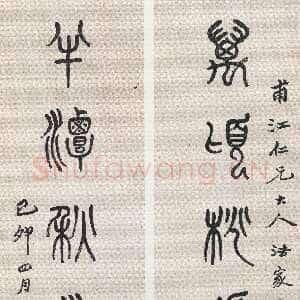 甫江仁兄大人法家
萬頃桃
半潭秋
己卯四月
Shufawang.CN